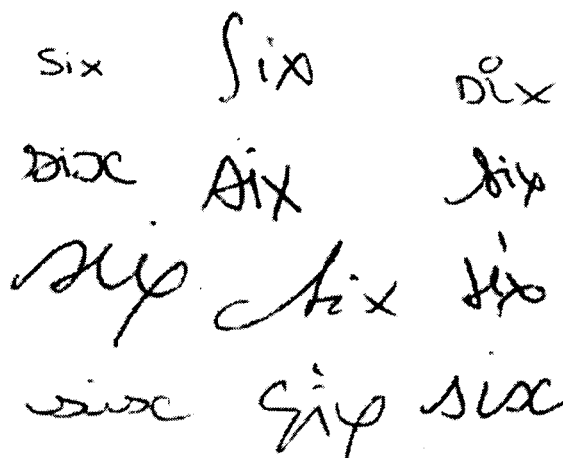 six six six
six six six
six six six
six six six